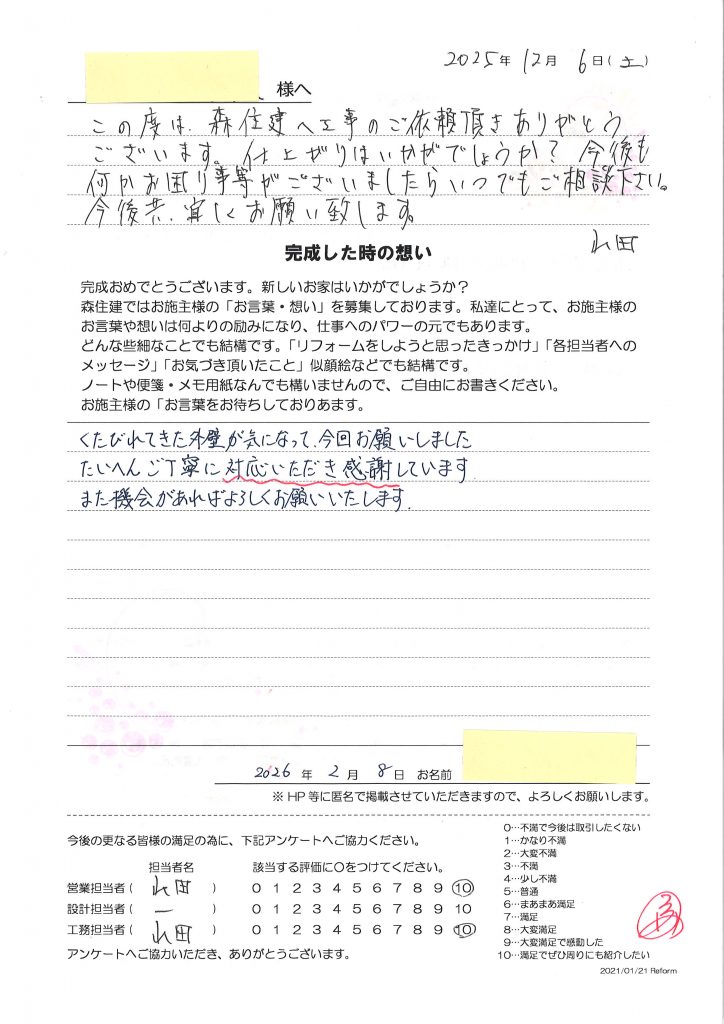 2025年12月6日(土)
様へ
この度は、森住建へ工事のご依頼頂きありがとう
ございます。仕上がりはいかがでしょうか？今後も
何かお困り事等がございましたらいつでもご相談下さい。
今後共、宜しくお願い致します。
山田
完成した時の想い
完成おめでとうございます。新しいお家はいかがでしょうか？
森住建ではお施主様の「お言葉・想い」を募集しております。私達にとって、お施主様の
お言葉や想いは何よりの励みになり、仕事へのパワーの元でもあります。
どんな些細なことでも結構です。「リフォームをしようと思ったきっかけ」「各担当者への
メッセージ」「お気づき頂いたこと」似顔絵などでも結構です。
ノートや便箋・メモ用紙なんでも構いませんので、ご自由にお書きください。
お施主様の「お言葉をお待ちしておりあます。
くたびれてきた外壁が気になって、今回お願いしました
たいへんご丁寧に対応いただき感謝しています
また機会があればよろしくお願いいたします.
2026年2月8日 お名前
※HP等に匿名で掲載させていただきますので、よろしくお願いします。
今後の更なる皆様の満足の為に、下記アンケートへご協力ください。
担当者名 該当する評価に○をつけてください。
営業担当者(山田) 0 1 2 3 4 5 6 7 8 9 10
設計担当者(ー) 0 1 2 3 4 5 6 7 8 9 10
工務担当者(山田) 0 1 2 3 4 5 6 7 8 9 10
アンケートへご協力いただき、ありがとうございます。
0…不満で今後は取引したくない
1…かなり不満
2…大変不満
3…不満
4…少し不満
5…普通
6…まあまあ満足
7…満足
8…大変満足
9…大変満足で感動した
10…満足でぜひ周りにも紹介したい
2021/01/21 Reform